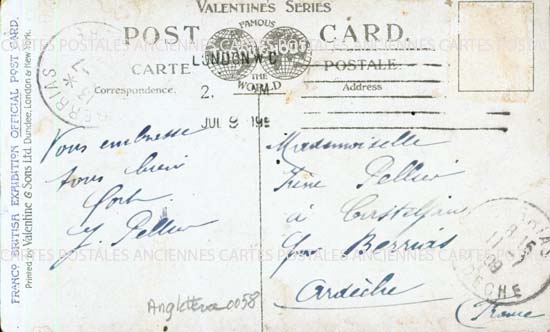 VALENTINE'S SERIES
POST CARD.
FAMOUS
THE
WORLD
CARTE POSTALE
Correspondence.
Address
LONDON W.C
2.
JUL 9 19
BERRIAS
BERRIAS
ARDECHE
FRANCO BRITISH EXHIBITION OFFICIAL POST CARD.
Printed by Valentine & Sons Ltd. Dundee, London & New York.
CARTES POSTALES ANCIENNES CARTES POSTALES ANCIENNES
Vous embrasse
tous bien
fort
J. Pellier
Mademoiselle
Irène Pellier
à Casteljau
par Berrias
Ardèche
France
Angleterre 0058